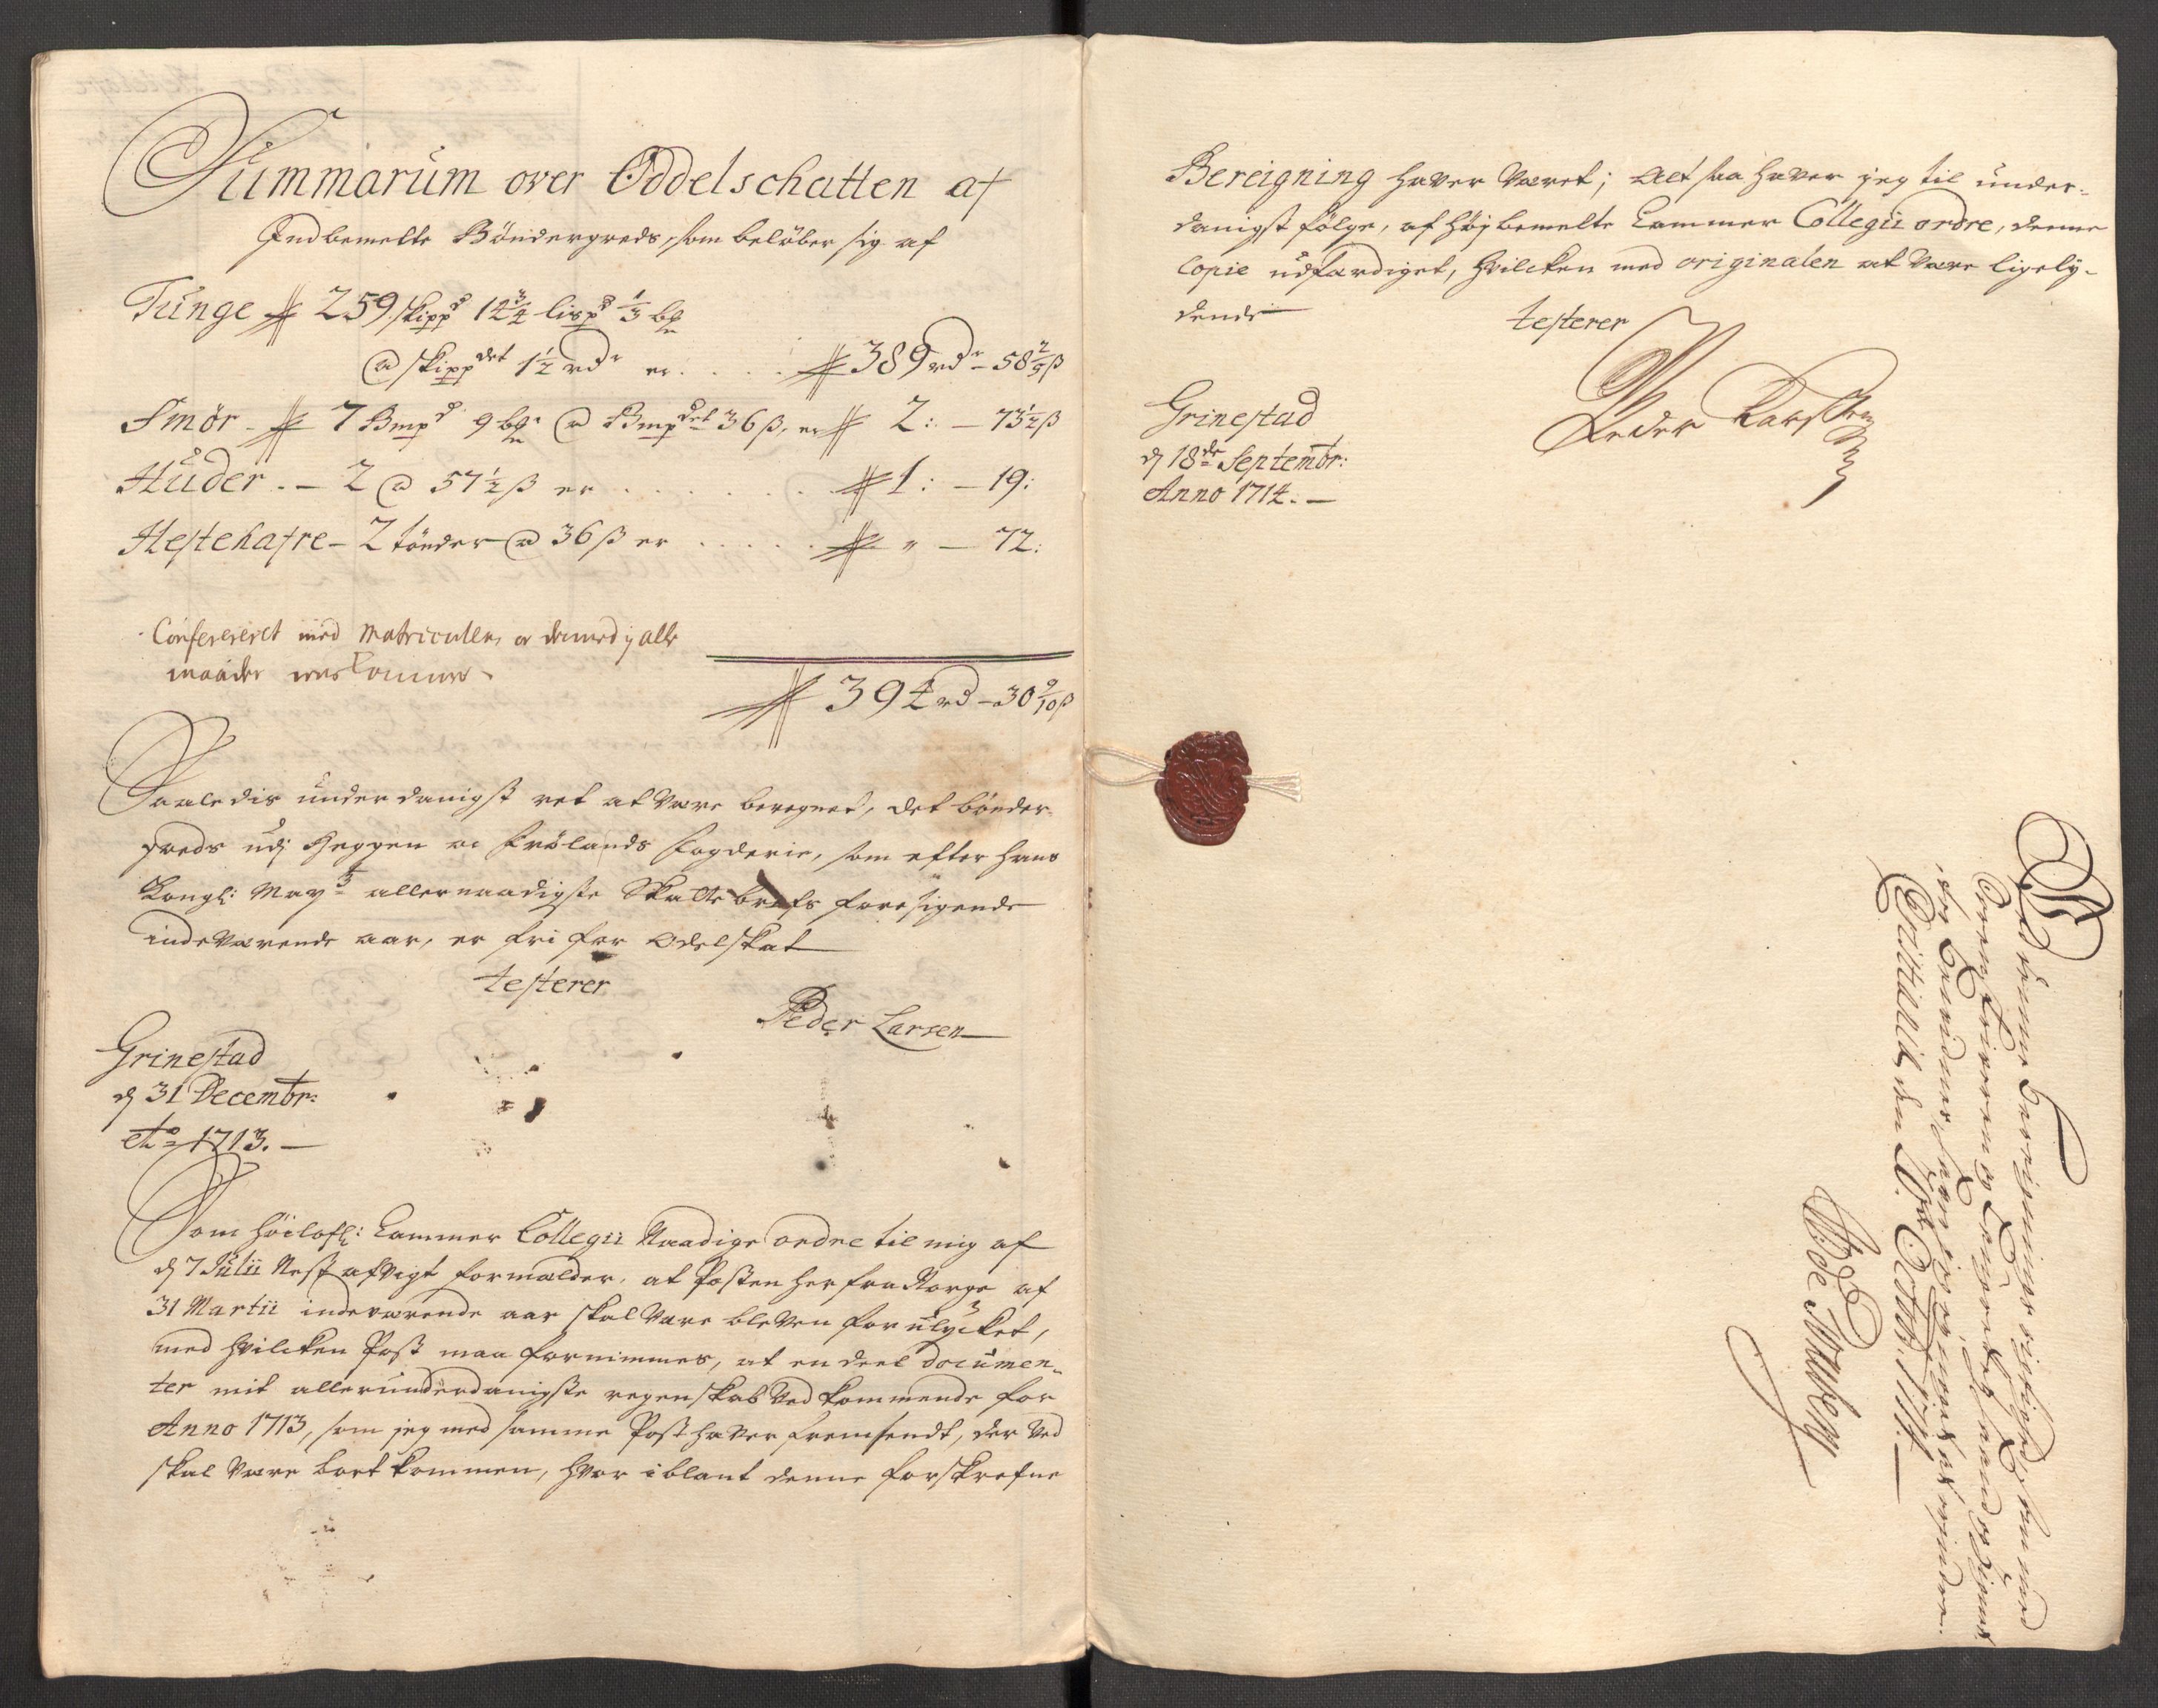 Summarum over Oddelschatten af
Indbemelte Bøndergreds, som beløber sig af
Tunge 259 skippd 14 3/4 lispd 1/3 bg
@ skippdet 1 1/2 rdr er . . . . 389 rdr - 58 2/5 ß
Smør - 7 Bmpd 9 bgr @ Bmpdet 36 ß, er 2: - 73 1/2 ß
Huder. - 2 @ 57 1/2 ß er . . . . . . 1: - 19:
Hestehafre - 2 tønder @ 36 ß er . . . . . " - 72:
Confereret med Matriculen, og dermed j alle
maader
394 rd - 30 9/10 ß
Saaledis underdanigst ret at være beregnet, det bønder
greds udj Heggen og Frølands fogderie, som efter Hans
Kongl: Mayts allernaadigste Skattebrefs foresigende
indeværende aar, er fri for odelskat
testerer
Peder Larsen
Grinestad
d 31 Decembr:
Ao 1713. -
Som høilofl: Cammer Collegii Naadige ordre til mig af
d 7 Julii Nest afvigt formælder, at Posten her fra Norge af
31 Martii indeværende aar skal være bleven forulycket,
med hvilcken Post maa fornimmes, at en deel documen-
ter mit allerunderdanigste regenskab vedkommende for
Anno 1713, som jeg med samme Post haver fremsendt, der ved
skal være bortkommen, hvor iblant denne forskrefne
Bereigning haver været; Alt saa haver jeg til under-
danigst følge, af højbemelte Cammer Collegii ordre, denne
Copie udfærdiget, hvilcken med originalen at være ligely-
dende
testerer
Peder Larssen
Grinestad
d 18de Septembr:
Anno 1714. -
Ved denne Berregnings rigtighed, som med